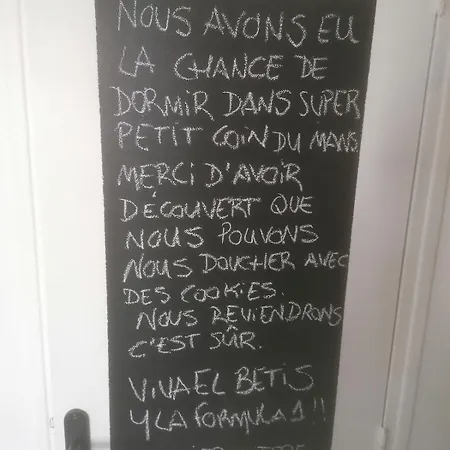 NOUS AVONS EU
LA CHANCE DE
DORMIR DANS SUPER
PETIT COIN DU MANS.
MERCI D'AVOIR
DÉCOUVERT QUE
NOUS POUVONS
NOUS DOUCHER AVEC
DES COOKIES.
NOUS REVIENDRONS
C'EST SÛR.
VIVA EL BETIS
Y LA FORMULA 1 !!